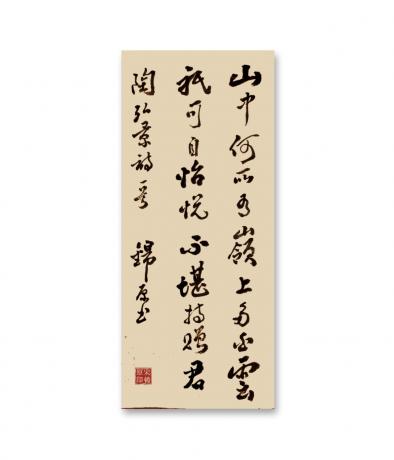 山中何所有嶺上多白雲
祇可自怡悦不堪持贈君
陶弘景詩 錦原书